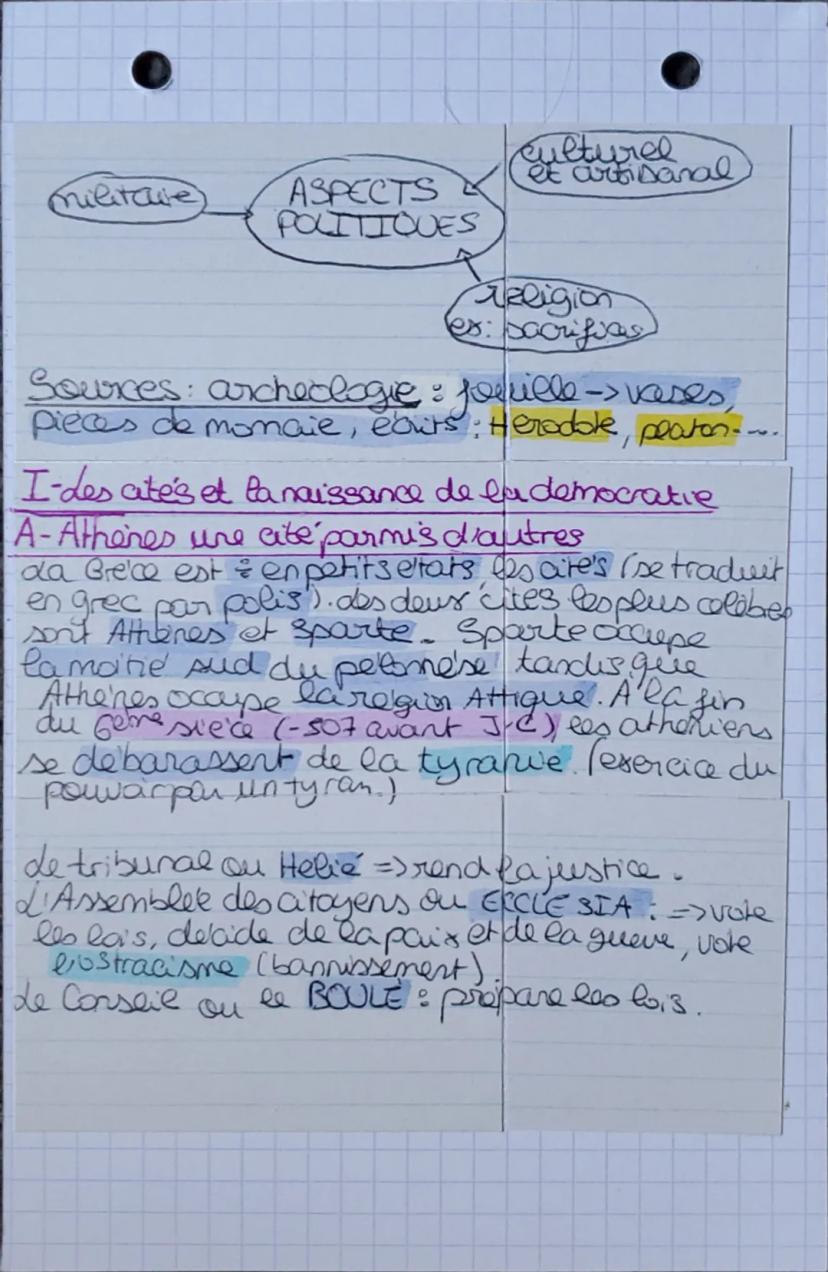 militaire
ASPECTS
POLITIQUES
culturel
et artisanal
religion
ex: sacrifices
Sources: archeologie : fouille -> vases,
pièces de monaie, écrits : Herodote, platon- ...
I-des cités et la naissance de la démocratie
A-Athènes une cité parmis d'autres
La Grèce est ÷ en petits états, les cités (se traduit
en grec par polis). des deux cités les plus celèbres
sont Athènes et Sparte. Sparte occupe
la moitié sud du pélonèse tandis que
Athènes occupe la région Attique. A la fin
du 6ème siècle (-507 avant J-C), les athéniens
se débarassent de la tyranie. (exercice du
pouvoir par un tyran.)
Le tribunal ou Helié => rend la justice.
L'Assemblée des citoyens ou ECCLÉSIA : => vote
les lois, décide de la paix et de la guerre, vote
l'ostracisme (bannissement)
Le Conseil ou le BOULÉ : prépare les lois.